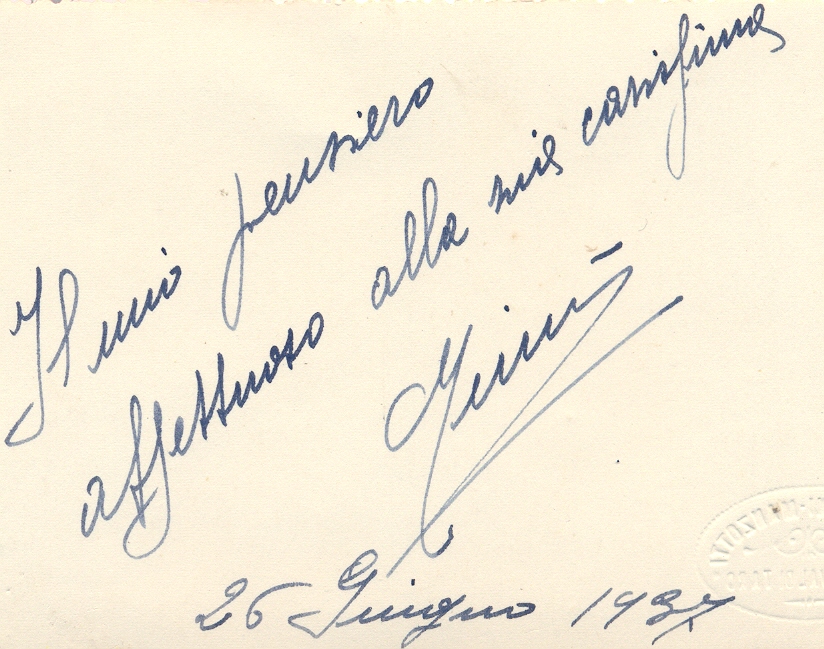 Il mio pensiero
affettuoso alla mia carissima
26 Giugno 1937